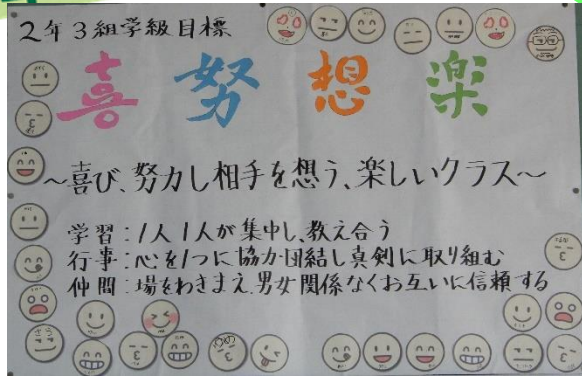 2年3組学級目標
喜努想楽
～喜び、努力し相手を想う、楽しいクラス～
学習:1人1人が集中し、教え合う
行事:心を1つに協力団結し真剣に取り組む
仲間:場をわきまえ、男女関係なくお互いに信頼する